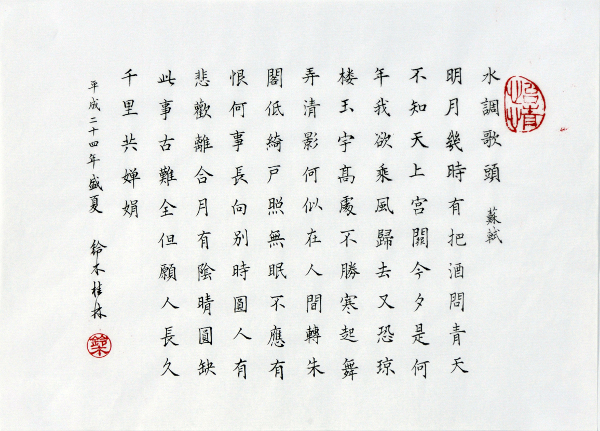 怡情
水調歌頭 蘇軾
明月幾時有把酒問青天
不知天上宮闕今夕是何
年我欲乘風歸去又恐琼
楼玉宇髙處不勝寒起舞
弄清影何似在人間轉朱
閣低綺戸照無眠不應有
恨何事長向別時圓人有
悲歡離合月有陰晴圓缺
此事古難全但願人長久
千里共嬋娟
平成二十四年盛夏 鈴木桂林
鈴木